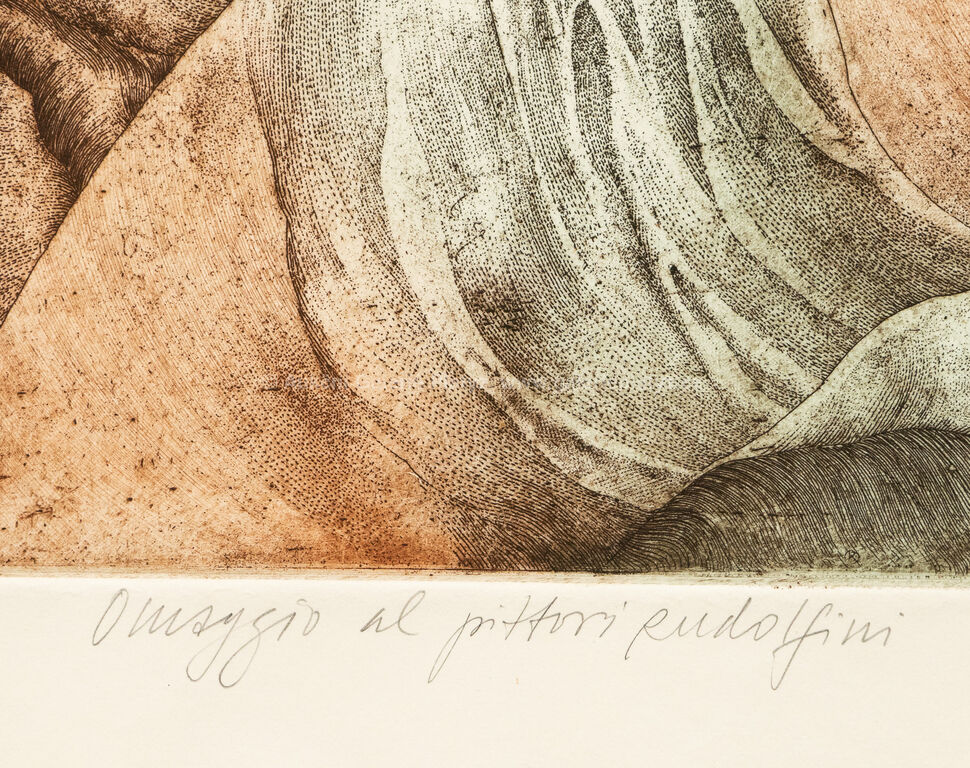 Omaggio al pittori rudolfini